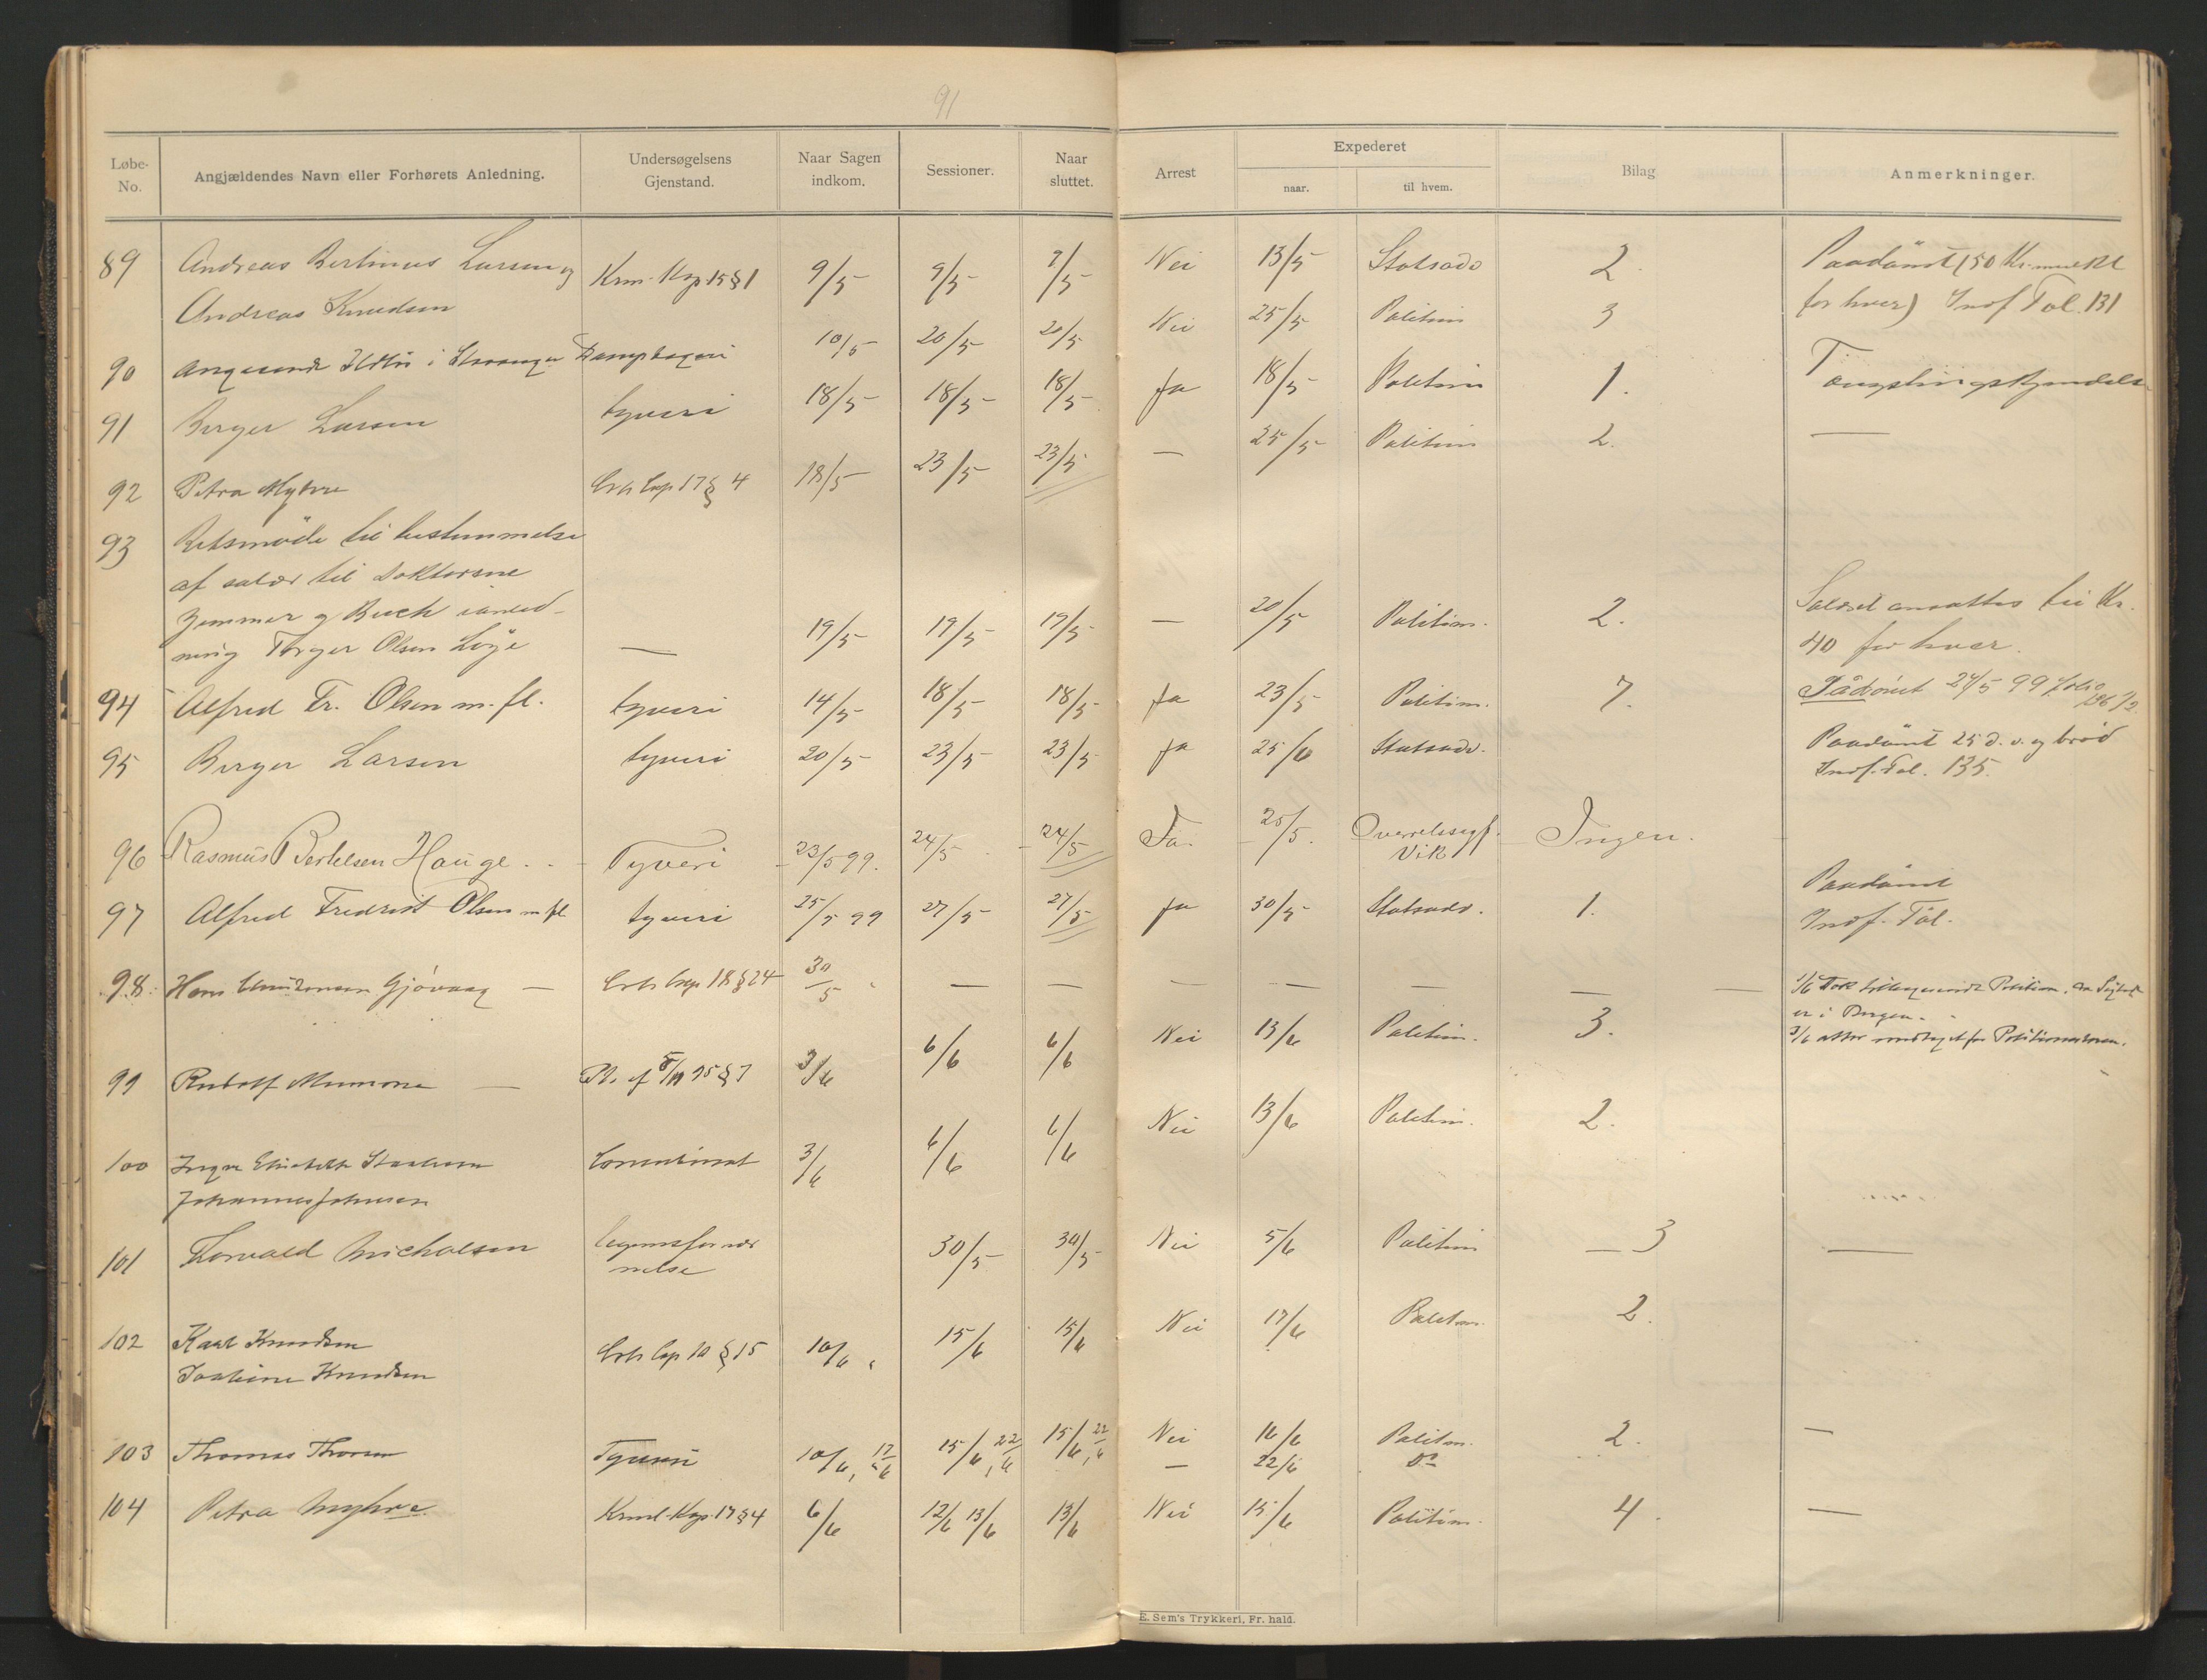 91
Løbe-No. Angjældendes Navn eller Forhørets Anledning. Undersøgelsens Gjenstand. Naar Sagen indkom. Sessioner. Naar sluttet. Arrest Expederet naar. til hvem. Bilag Anmerkninger.
89 Andreas Bertinius Larsen og Krm. Kap 15 § 1 9/5 9/5 9/5 Nei 13/5 Statsadv 2. Paadömt (50 Kr.
Andreas Knudsen for hver) Fol. 131
90 Angaaende Ildlös i Stavanger Dampbageri 10/5 20/5 20/5 Nei 25/5 Politim 3
91 Berger Larsen tyveri 18/5 18/5 18/5 Ja 18/5 Politim 1. Fængslingskjendelse
92 Petra Myhre Crl. Cap 17 § 4 18/5 23/5 23/5 — 25/5 Politim 2. —
93 Retsmöde til bestemmelse
af salær til Doktorerne
Zimmer og Buch i anled-
ning Torger Olsen Loge — 19/5 19/5 19/5 — 20/5 Politim. 2. Salæret ansattes til Kr.
40 for hver.
94 Alfred Fr. Olsen m. fl. tyveri 14/5 18/5 18/5 Ja 23/5 Politim. 7. Pådömt 27/5 99 folio 136
95 Berger Larsen tyveri 20/5 23/5 23/5 Ja 25/6 Statsadv. Paadömt 25 d. v. og bröd
Fol. 135.
96 Rasmus Bertelsen Hauge. Tyveri 23/5 99. 24/5 24/5 Ja. 25/5. Overretssagf. Vik Ingen.
97 Alfred Fredrik Olsen m fl tyveri 25/5 99 27/5 27/5 Ja 30/5 Statsadv. 1. Paadömt
Fol.
98. Hans Gjövaag — Crl. Cap 18 § 24 30/5 — — — — — — 1/6 Politim.
er i Bergen.
3/6 atter for Politimesteren.
99 Rudolf — 95 § 7 3/6 6/6 6/6 Nei 13/6 Politim. 3.
100 Inger Elisabeth Concubinat 3/6 6/6 6/6 Nei 13/6 Politim. 2.
Johannes Johnsen
101 Torvald Michalsen legemsfornær
melse 30/5 30/5 Nei 5/6 Politim — 3 —
102 Karl Knudsen Crl. Cap 10 § 15 10/6 15/6 15/6 Nei 17/6 Politim. 2.
Knudsen
103 Thomas Thorsen Tyveri 10/6, 17/6 15/6, 22/6 15/6, 22/6 Nei 16/6 Politim. 2. —
— 22/6 Do
104 Petra Myhre Krml. Kap. 17 § 4 6/6 12/6 13/6 13/6 Nei 15/6 Politim. 4. —
E. Sem's Trykkeri, Fr. hald.